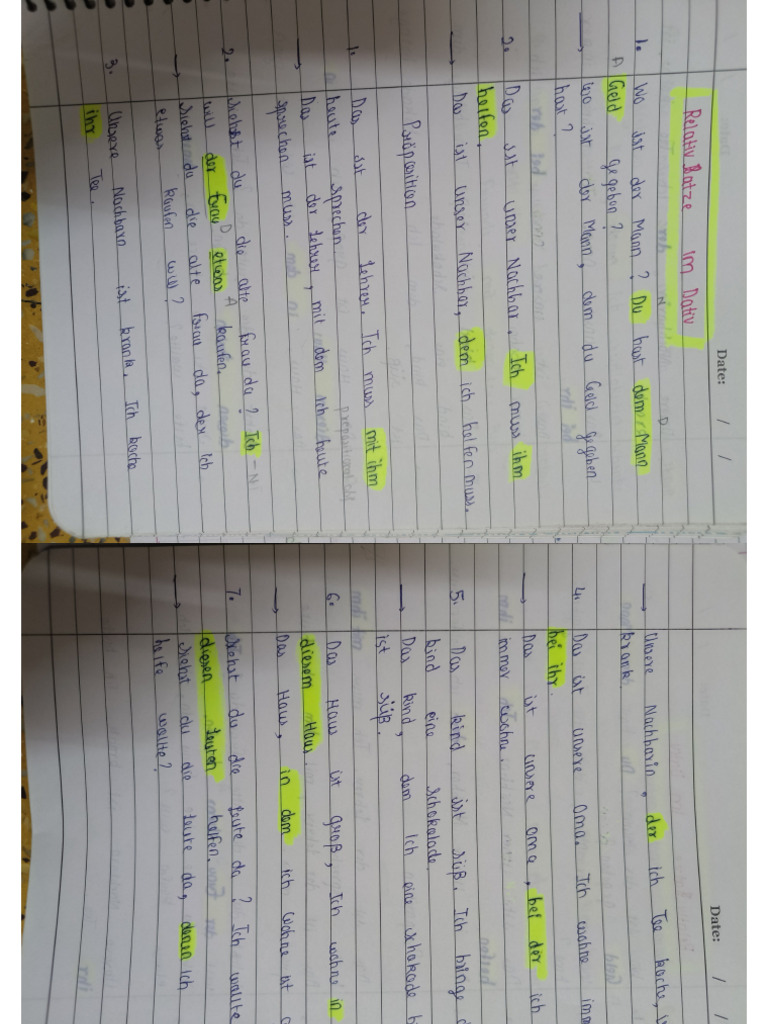 Date: / /
Relativ Sätze im Dativ
N D
1. Wo ist der Mann? Du hast dem Mann
A
Geld gegeben?
→ Wo ist der Mann, dem du Geld gegeben
hast?
2. Das ist unser Nachbar. Ich muss ihm
helfen.
→ Das ist unser Nachbar, dem ich helfen muss.
Präposition
1. Das ist der Lehrer. Ich muss mit ihm
heute sprechen.
→ Das ist der Lehrer, mit dem ich heute
sprechen muss.
2. Siehst du die alte Frau da? Ich - N
will der Frau D etwas A kaufen.
→ Siehst du die alte Frau da, der ich
etwas kaufen will?
3. Unsere Nachbarn ist krank. Ich koche
ihr Tee.
Date: / /
→ Unsere Nachbarin, der ich Tee koche,
krank.
4. Das ist unsere Oma. Ich wohne
bei ihr.
→ Das ist unsere Oma, bei der ich
immer wohne.
5. Das Kind ist süß. Ich bringe
kind eine Schokolade.
→ Das Kind, dem Ich eine Schokade
ist süß.
6. Das Haus ist groß, Ich wohne in
diesem Haus.
→ Das Haus, in dem ich wohne ist
7. Siehst du die Leute da? Ich wollte
diesen Leuten helfen.
→ Siehst du die Leute da, denen ich
helfe wollte?